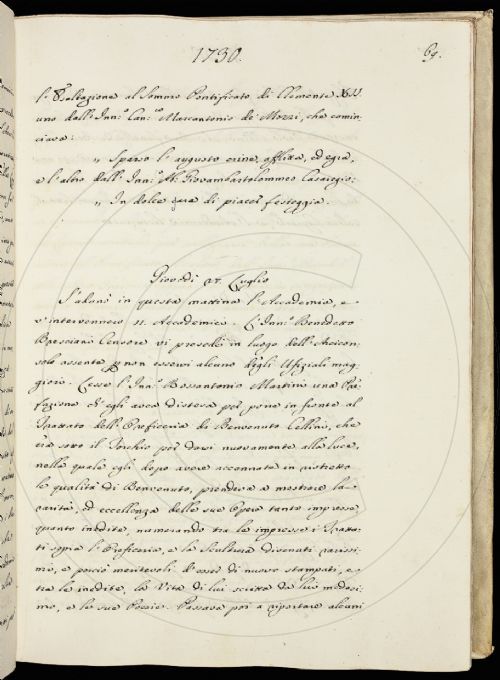 1730.
69.
l'Esaltazione al Sommo Pontificato di Clemente XII.
uno dall'Inno. Canco. Marcantonio de' Mozzi, che comin,
ciava:
„ Sparso l'augusto crine, afflitta, ed egra,
e l'altro dall'Inno. Ab. Giovambartolommeo Casaregio:
„ In dolce gara di piacer festeggia.
Giovedì 27. Luglio
S'adunò in questa mattina l'Accademia, e
v'intervennero 11. Accademici. L'Inno. Benedetto
Bresciani Censore vi presedè in luogo dell'Arcicon,
solo assente, p non esservi alcuno degli Ufiziali mag,
giori. Lesse l'Inno. Rossantonio Martini una Pre,
fazione ch'egli avea distesa per porre in fronte al
Trattato dell'Oreficeria di Benvenuto Cellini, che
era sotto il Torchio per darsi nuovamente alla luce,
nella quale egli dopo avere accennate in ristretto
le qualità di Benvenuto, prendeva a mostrare la
rarità, ed eccellenza delle sue Opere tanto impresse,
quanto inedite, numerando tra le impresse i Tratta,
ti sopra l'Oreficeria, e la Scultura divenuti rarissi,
mi, e perciò meritevoli d'esser di nuovo stampati, e
tra le inedite, la Vita di lui scritta da lui medesi,
mo, e le sue Poesie. Passava poi a riportare alcuni